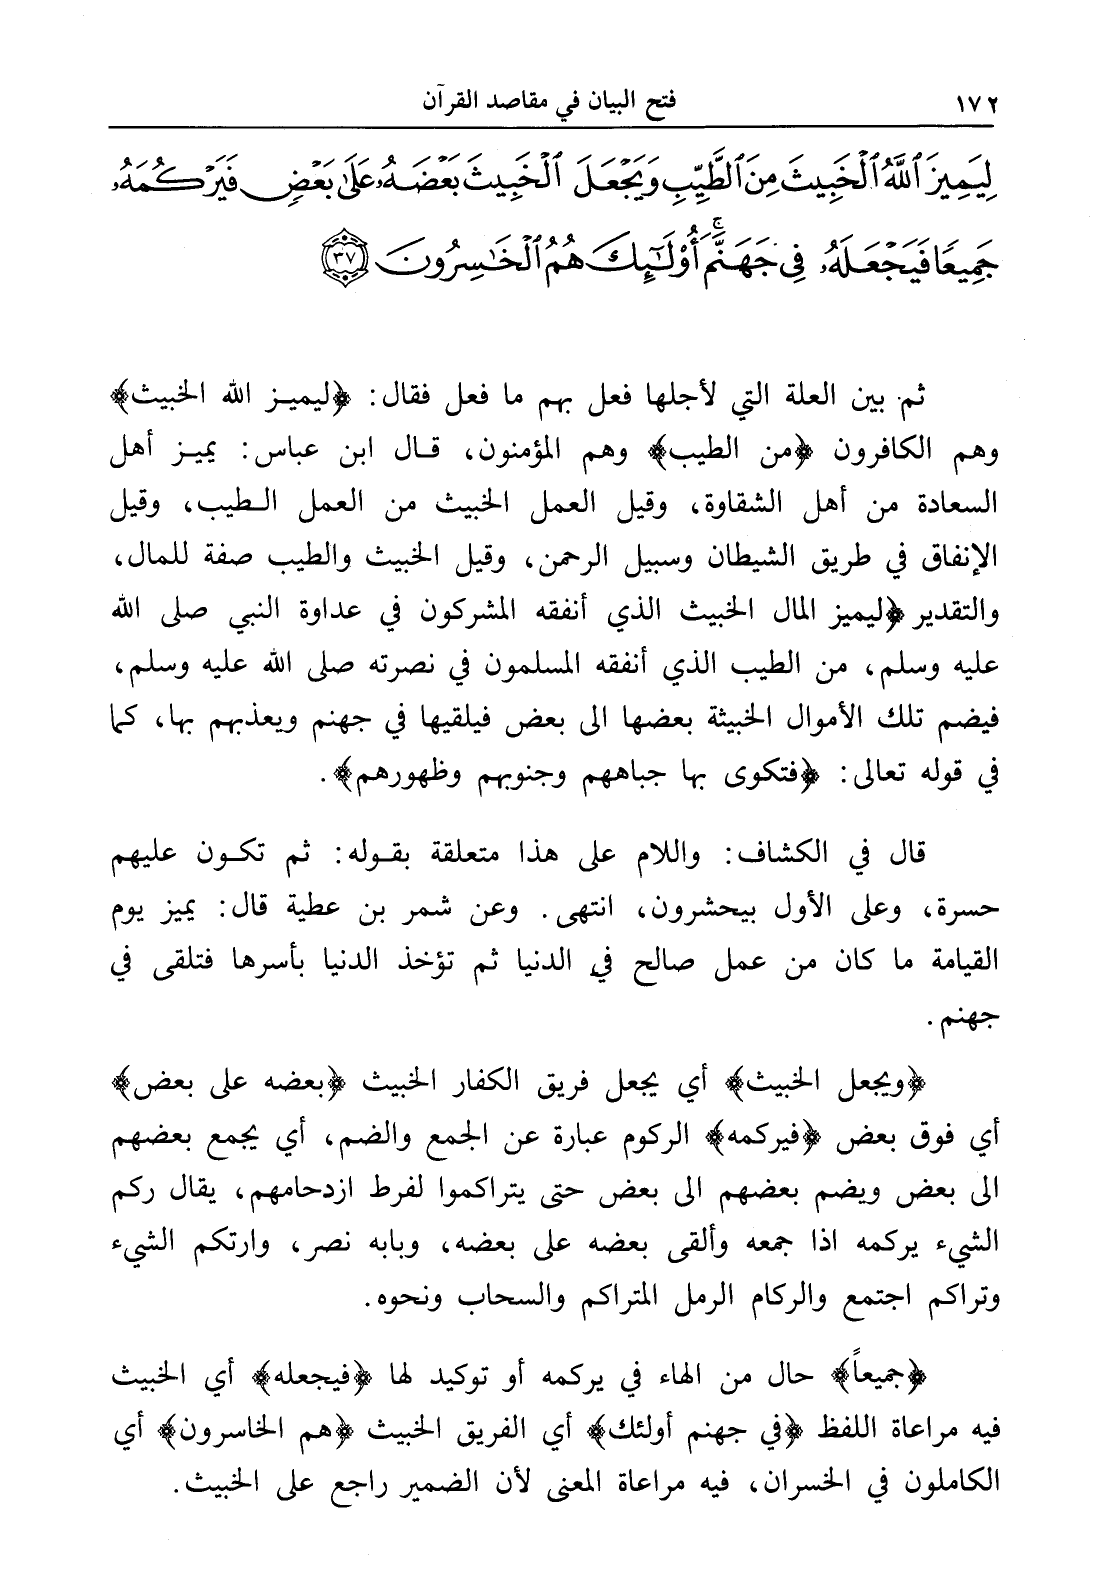 ١٧٢ فتح البيان في مقاصد القرآن
لِيَمِيزَ ٱللَّهُ ٱلْخَبِيثَ مِنَ ٱلطَّيِّبِ وَيَجْعَلَ ٱلْخَبِيثَ بَعْضَهُۥ عَلَىٰ بَعْضٍ فَيَرْكُمَهُۥ
جَمِيعًا فَيَجْعَلَهُۥ فِى جَهَنَّمَ ۚ أُو۟لَٰٓئِكَ هُمُ ٱلْخَٰسِرُونَ ٣٧
ثم بين العلة التي لأجلها فعل بهم ما فعل فقال: ﴿ليميز الله الخبيث﴾
وهم الكافرون ﴿من الطيب﴾ وهم المؤمنون، قال ابن عباس: يميز أهل
السعادة من أهل الشقاوة، وقيل العمل الخبيث من العمل الطيب، وقيل
الإنفاق في طريق الشيطان وسبيل الرحمن، وقيل الخبيث والطيب صفة للمال،
والتقدير ﴿ليميز المال الخبيث الذي أنفقه المشركون في عداوة النبي صلى الله
عليه وسلم، من الطيب الذي أنفقه المسلمون في نصرته صلى الله عليه وسلم،
فيضم تلك الأموال الخبيثة بعضها الى بعض فيلقيها في جهنم ويعذبهم بها، كما
في قوله تعالى: ﴿فتكوى بها جباههم وجنوبهم وظهورهم﴾.
قال في الكشاف: واللام على هذا متعلقة بقوله: ثم تكون عليهم
حسرة، وعلى الأول بيحشرون، انتهى. وعن شمر بن عطية قال: يميز يوم
القيامة ما كان من عمل صالح في الدنيا ثم تؤخذ الدنيا بأسرها فتلقى في
جهنم.
﴿ويجعل الخبيث﴾ أي يجعل فريق الكفار الخبيث ﴿بعضه على بعض﴾
أي فوق بعض ﴿فيركمه﴾ الركوم عبارة عن الجمع والضم، أي يجمع بعضهم
الى بعض ويضم بعضهم الى بعض حتى يتراكموا لفرط ازدحامهم، يقال ركم
الشيء يركمه اذا جمعه وألقى بعضه على بعضه، وبابه نصر، وارتكم الشيء
وتراكم اجتمع والركام الرمل المتراكم والسحاب ونحوه.
﴿جميعاً﴾ حال من الهاء في يركمه أو توكيد لها ﴿فيجعله﴾ أي الخبيث
فيه مراعاة اللفظ ﴿في جهنم أولئك﴾ أي الفريق الخبيث ﴿هم الخاسرون﴾ أي
الكاملون في الخسران، فيه مراعاة المعنى لأن الضمير راجع على الخبيث.